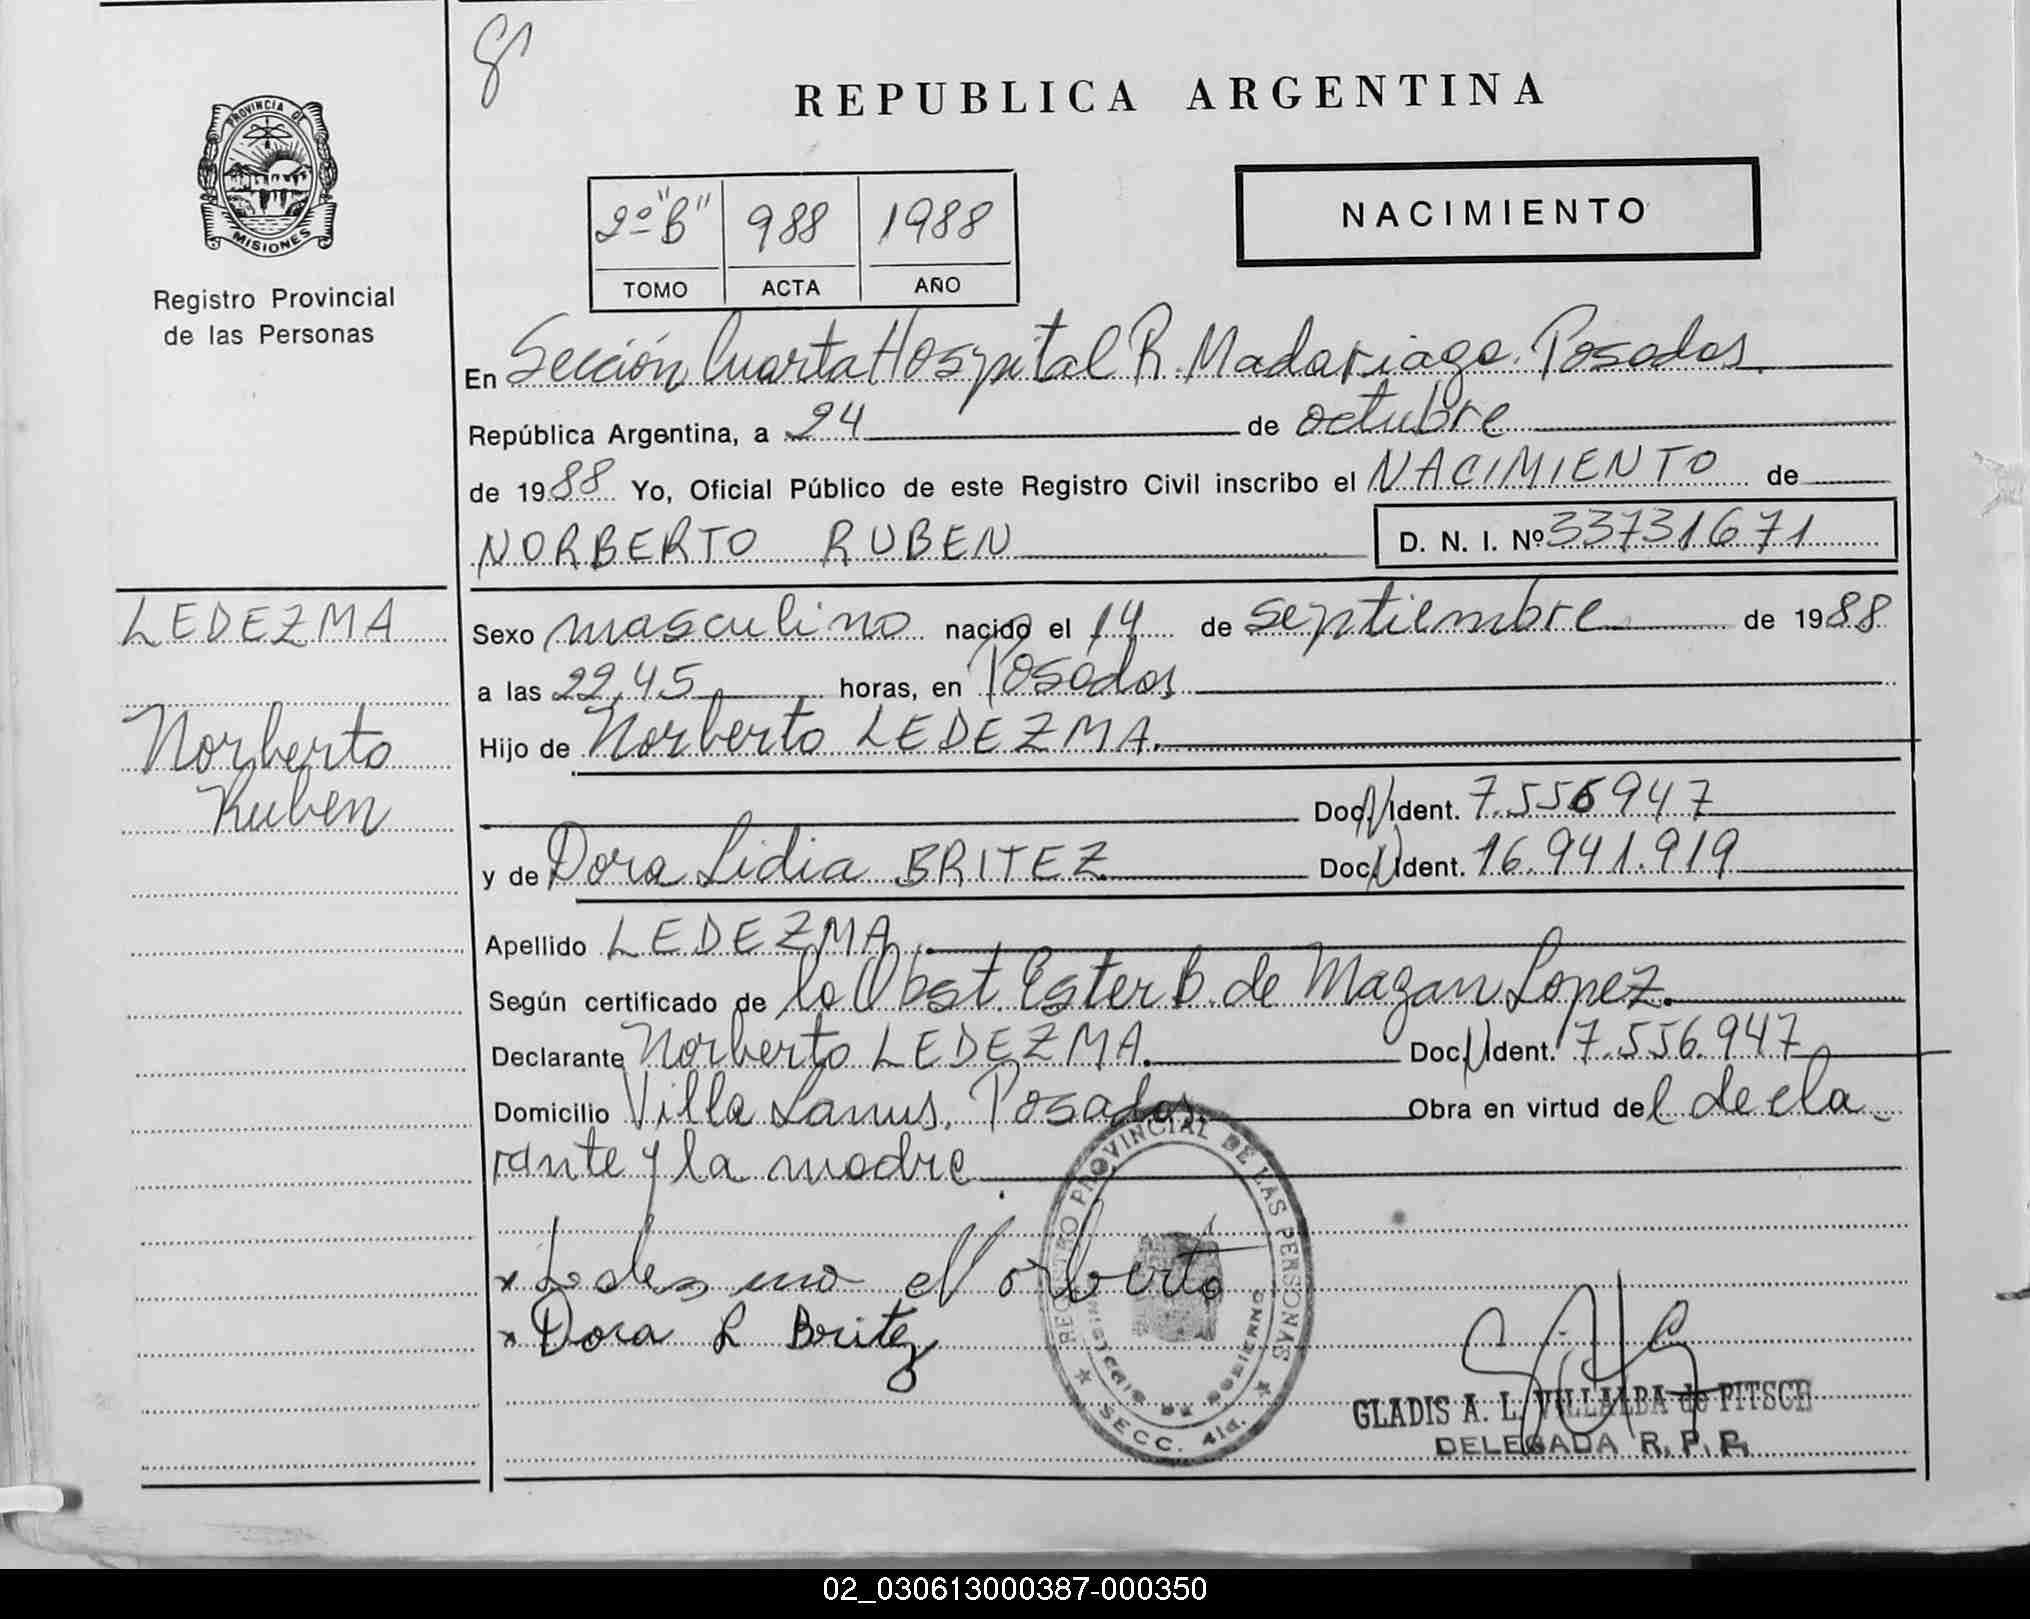 8
REPUBLICA ARGENTINA
PROVINCIA DE
MISIONES
Registro Provincial
de las Personas
2º "B" 988 1988
TOMO ACTA AÑO
NACIMIENTO
En Sección Cuarta Hospital R. Madariaga. Posadas.
República Argentina, a 24 de octubre
de 1988 Yo, Oficial Público de este Registro Civil inscribo el NACIMIENTO de
NORBERTO RUBEN D. N. I. Nº 33731671
LEDEZMA
Norberto
Ruben
Sexo masculino nacido el 14 de septiembre de 1988
a las 22,45 horas, en Posadas
Hijo de Norberto LEDEZMA.
Doc. Ident. 7.556947
y de Dora Lidia BRITEZ Doc. Ident. 16.941.919
Apellido LEDEZMA.
Según certificado de la Obst. Ester B. de Magan Lopez.
Declarante Norberto LEDEZMA. Doc. Ident. 7.556.947
Domicilio Villa Lanus. Posadas. Obra en virtud del decla
rante y la madre.
x Ledesma Norberto
x Dora L Britez
REGISTRO PROVINCIAL DE LAS PERSONAS
MINISTERIO DE GOBIERNO
SECC. 4ta.
GLADIS A. L. VILLALBA de PITSCH
DELEGADA R. P. P.
02_030613000387-000350